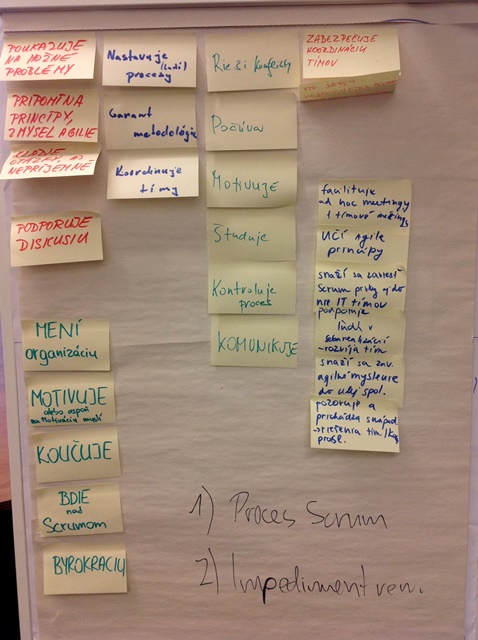 POUKAZUJE
NA MOŽNÉ
PROBLÉMY
PRIPOMÍNA
PRINCÍPY,
ZMYSEL AGILIE
KLADIE
OTÁZKY, AJ
NEPRIJEMNÉ
PODPORUJE
DISKUSIU
MENÍ
organizáciu
MOTIVUJE
alebo aspoň
KOUČUJE
BDIE
nad
Scrumom
BYROKRACIU
Nastavuje
(ladí)
procesy
Garant
metodológie
Koordinuje
tímy
Rieši konflikty
Počúva
Motivuje
Študuje
Kontroluje
proces
KOMUNIKUJE
ZABEZPEČUJE
KOORDINÁCIU
TÍMOV
facilituje
ad hoc meetingy
i tímové meetingy
Učí agile
princípy
snaží sa zaviesť
scrum prvky aj do
nie IT tímov
podporuje
ľudí v
sebarealizácií
-rozvíja tím
snaží sa zav.
agilné myslenie
do celej spol.
pozoruje a
prichádza s nápad.
riešenia
probl.
1) Proces Scrum
2) Impediment rem.